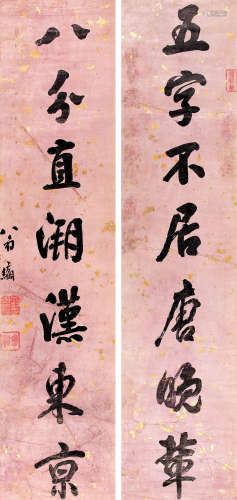 五字不居唐晚輩
八分直溯漢東京